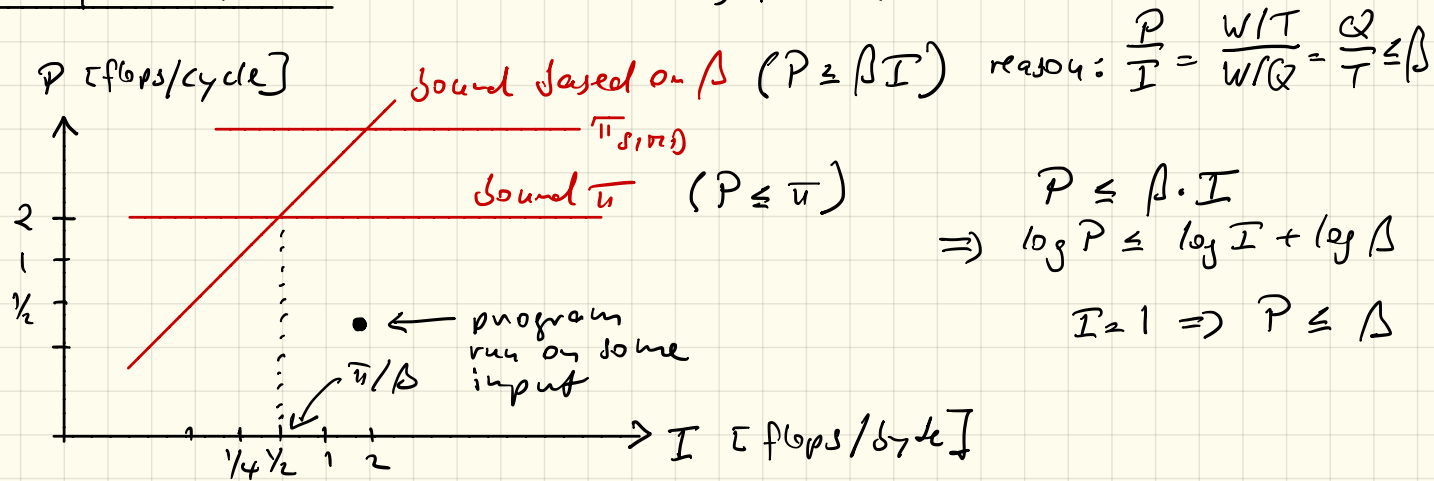 P [flops/cycle]
bound based on β (P ≤ βI)
reason: P/I = (W/T)/(W/Q) = Q/T ≤ β
π_SIMD
bound π (P ≤ π)
P ≤ β · I
⇒ log P ≤ log I + log β
I = 1 ⇒ P ≤ β
2
1
1/2
program
run on some
input
π/β
1/4 1/2 1 2
I [flops/byte]